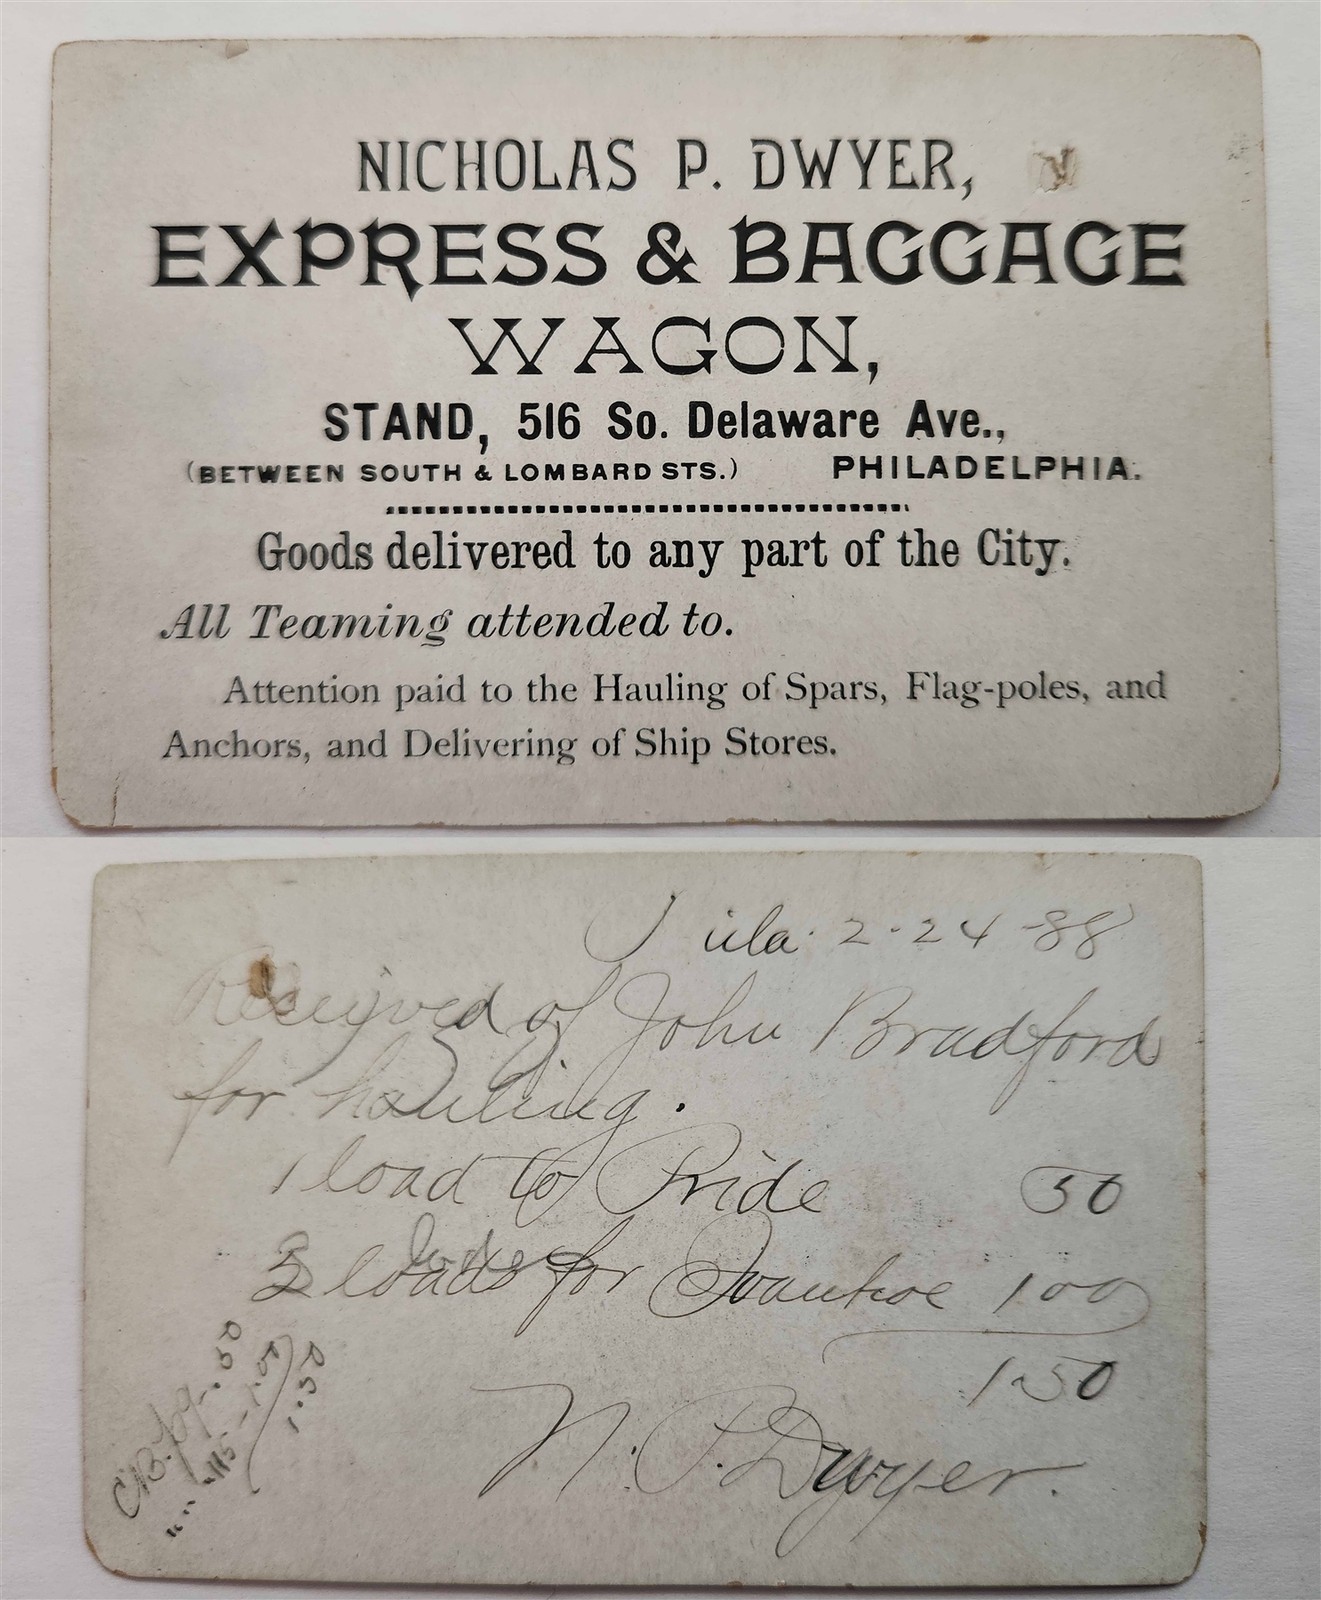 NICHOLAS P. DWYER,
EXPRESS & BAGGAGE
WAGON,
STAND, 516 So. Delaware Ave.,
(BETWEEN SOUTH & LOMBARD STS.) PHILADELPHIA.
Goods delivered to any part of the City.
All Teaming attended to.
Attention paid to the Hauling of Spars, Flag-poles, and
Anchors, and Delivering of Ship Stores.
2-24-88
Received of John Bradford
for hauling.
1 load to Pride 50
loads for Ivanhoe 100
1.50
N. P. Dwyer.
.50
" " 115 - 1.00
1.50